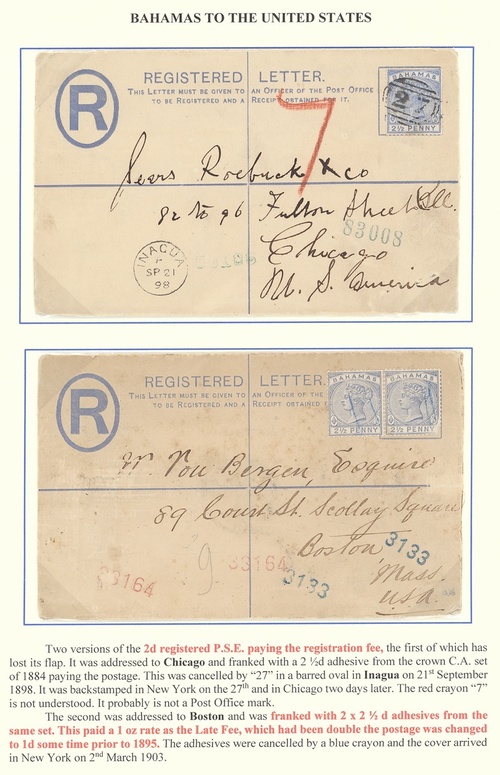 BAHAMAS TO THE UNITED STATES
REGISTERED LETTER.
THIS LETTER MUST BE GIVEN TO AN OFFICER OF THE POST OFFICE
TO BE REGISTERED AND A RECEIPT OBTAINED FOR IT.
R
BAHAMAS
27
2½ PENNY
7
Sears Roebuck & co
82 to 96 Fulton Street
83008
Chicago
U. S. America
INAGUA
SP 21
98
REGISTERED LETTER.
THIS LETTER MUST BE GIVEN TO AN OFFICER OF THE
TO BE REGISTERED AND A RECEIPT OBTAINED
R
BAHAMAS BAHAMAS
2½ PENNY 2½ PENNY
Mr. Von Bergen, Esquire
89 Court St. Scollay Square
Boston
3133
Mass.
U.S.A.
33164
9
33164
3133
Two versions of the 2d registered P.S.E. paying the registration fee, the first of which has
lost its flap. It was addressed to Chicago and franked with a 2 ½d adhesive from the crown C.A. set
of 1884 paying the postage. This was cancelled by “27” in a barred oval in Inagua on 21st September
1898. It was backstamped in New York on the 27th and in Chicago two days later. The red crayon “7”
is not understood. It probably is not a Post Office mark.
The second was addressed to Boston and was franked with 2 x 2 ½ d adhesives from the
same set. This paid a 1 oz rate as the Late Fee, which had been double the postage was changed
to 1d some time prior to 1895. The adhesives were cancelled by a blue crayon and the cover arrived
in New York on 2nd March 1903.